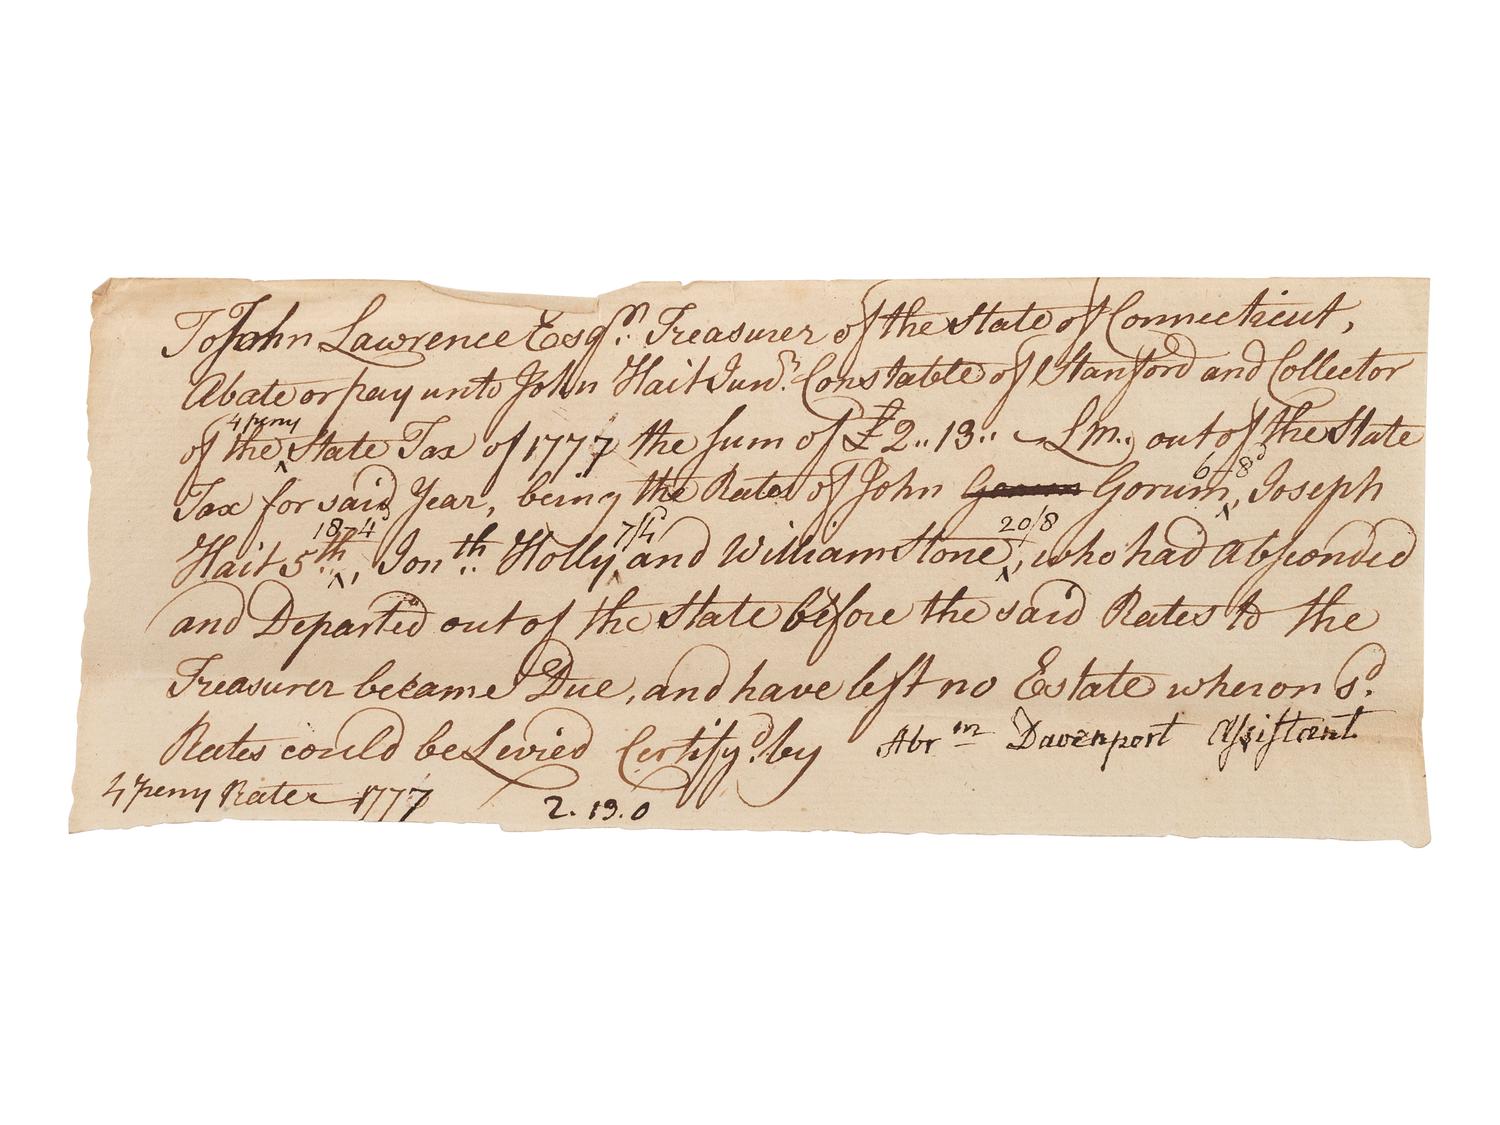 To John Lawrence Esqr. Treasurer of the State of Connecticut,
Abate or pay unto John Hait Junr. Constable of Stanford and Collector
4 peny
of the ‸ State Tax of 1777 the sum of £2..13.. Lm.. out of the State
6-8d
Tax for said Year, being the Rates of John Gorum ‸, Joseph
18-4 7/4d 20/8
Hait 5th.. ‸, Jonth.. Holly ‸ and William Stone ‸, who had absconded
and Departed out of the State before the said Rates to the
Treasurer became Due, and have left no Estate wheron sd.
Rates could be Levied Certifyd. by Abrm Davenport Assistant
4 peny Rates 1777 2.13.0